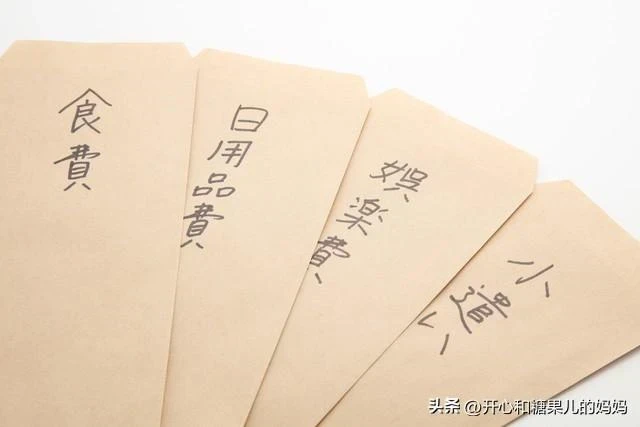 食費
日用品費
娯楽費
小遣い
头条 @开心和糖果儿的妈妈